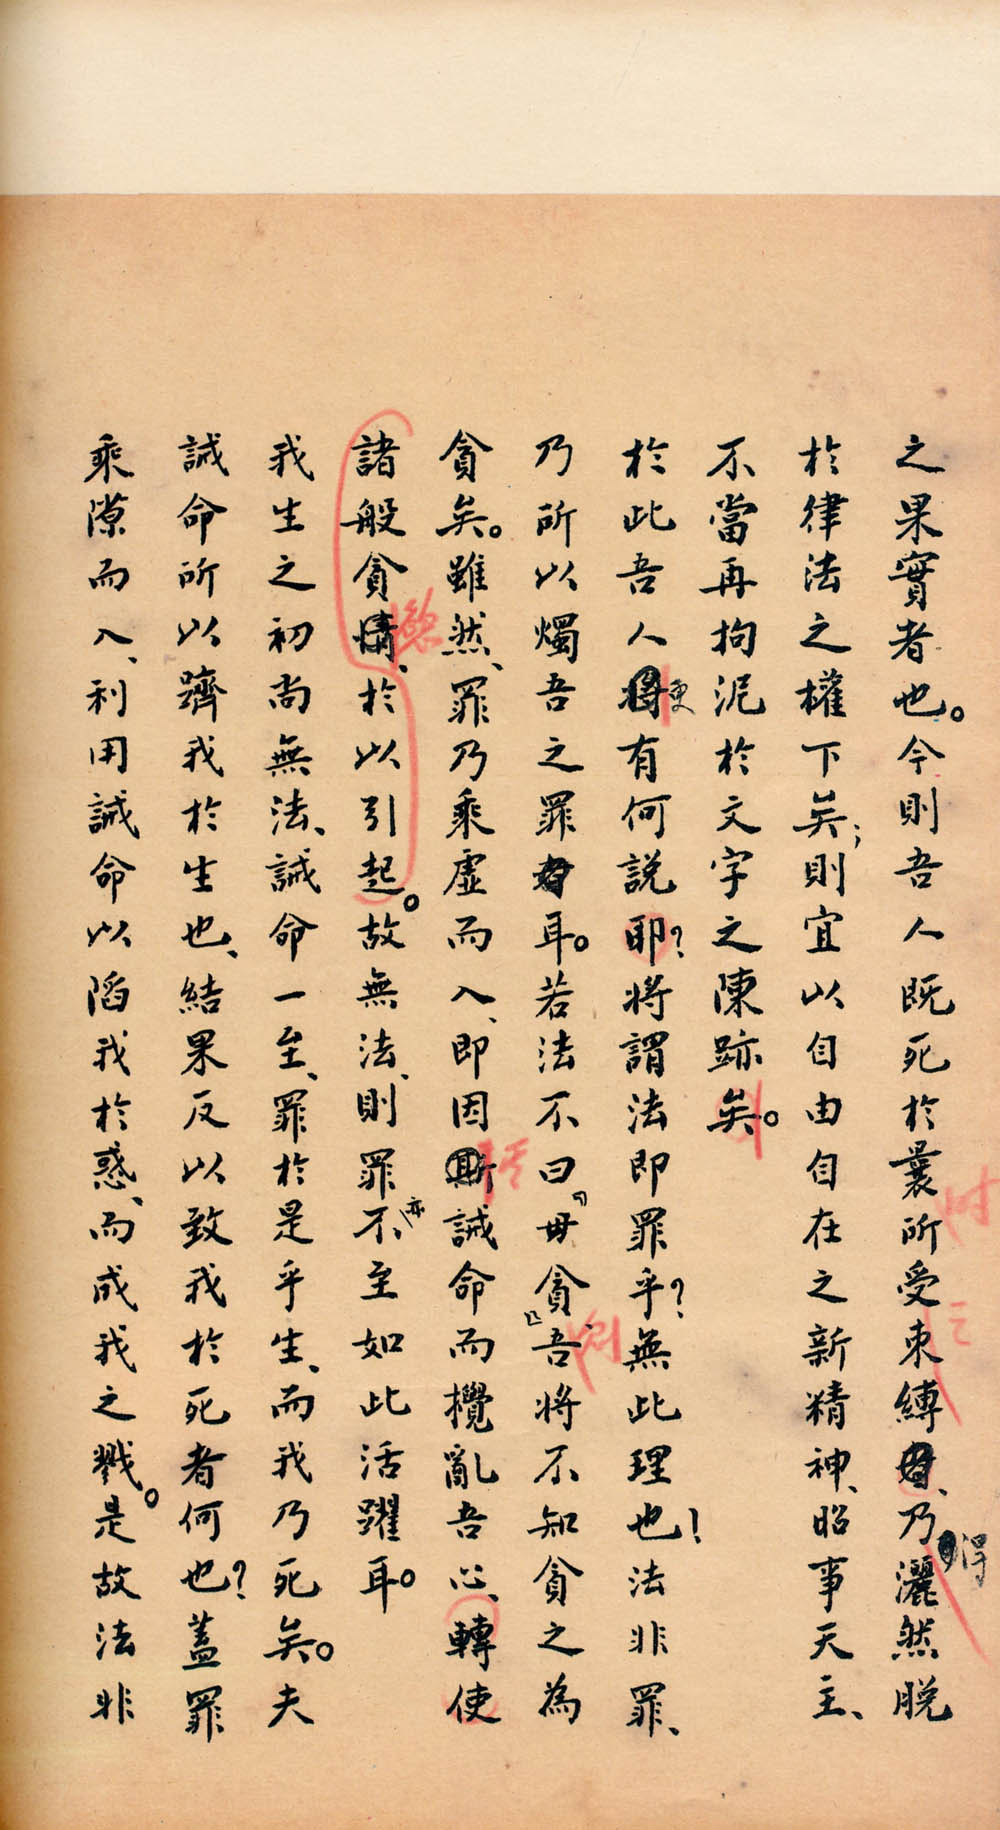 之果實者也。今則吾人既死於曩所受束縛、乃得灑然脫
於律法之權下矣;則宜以自由自在之新精神、昭事天主、
不當再拘泥於文字之陳跡矣。
於此吾人更有何說耶?將謂法即罪乎?無此理也!法非罪、
乃所以燭吾之罪耳。若法不曰『毋貪』、吾將不知貪之為
貪矣。雖然、罪乃乘虛而入、即因誡命而攪亂吾心、轉使
諸般貪情、於以引起。故無法、則罪亦不至如此活躍耳。
我生之初尚無法、誡命一至、罪於是乎生、而我乃死矣。夫
誡命所以躋我於生也、結果反以致我於死者何也?蓋罪
乘隙而入、利用誡命以陷我於惑、而成我之戮。是故法非